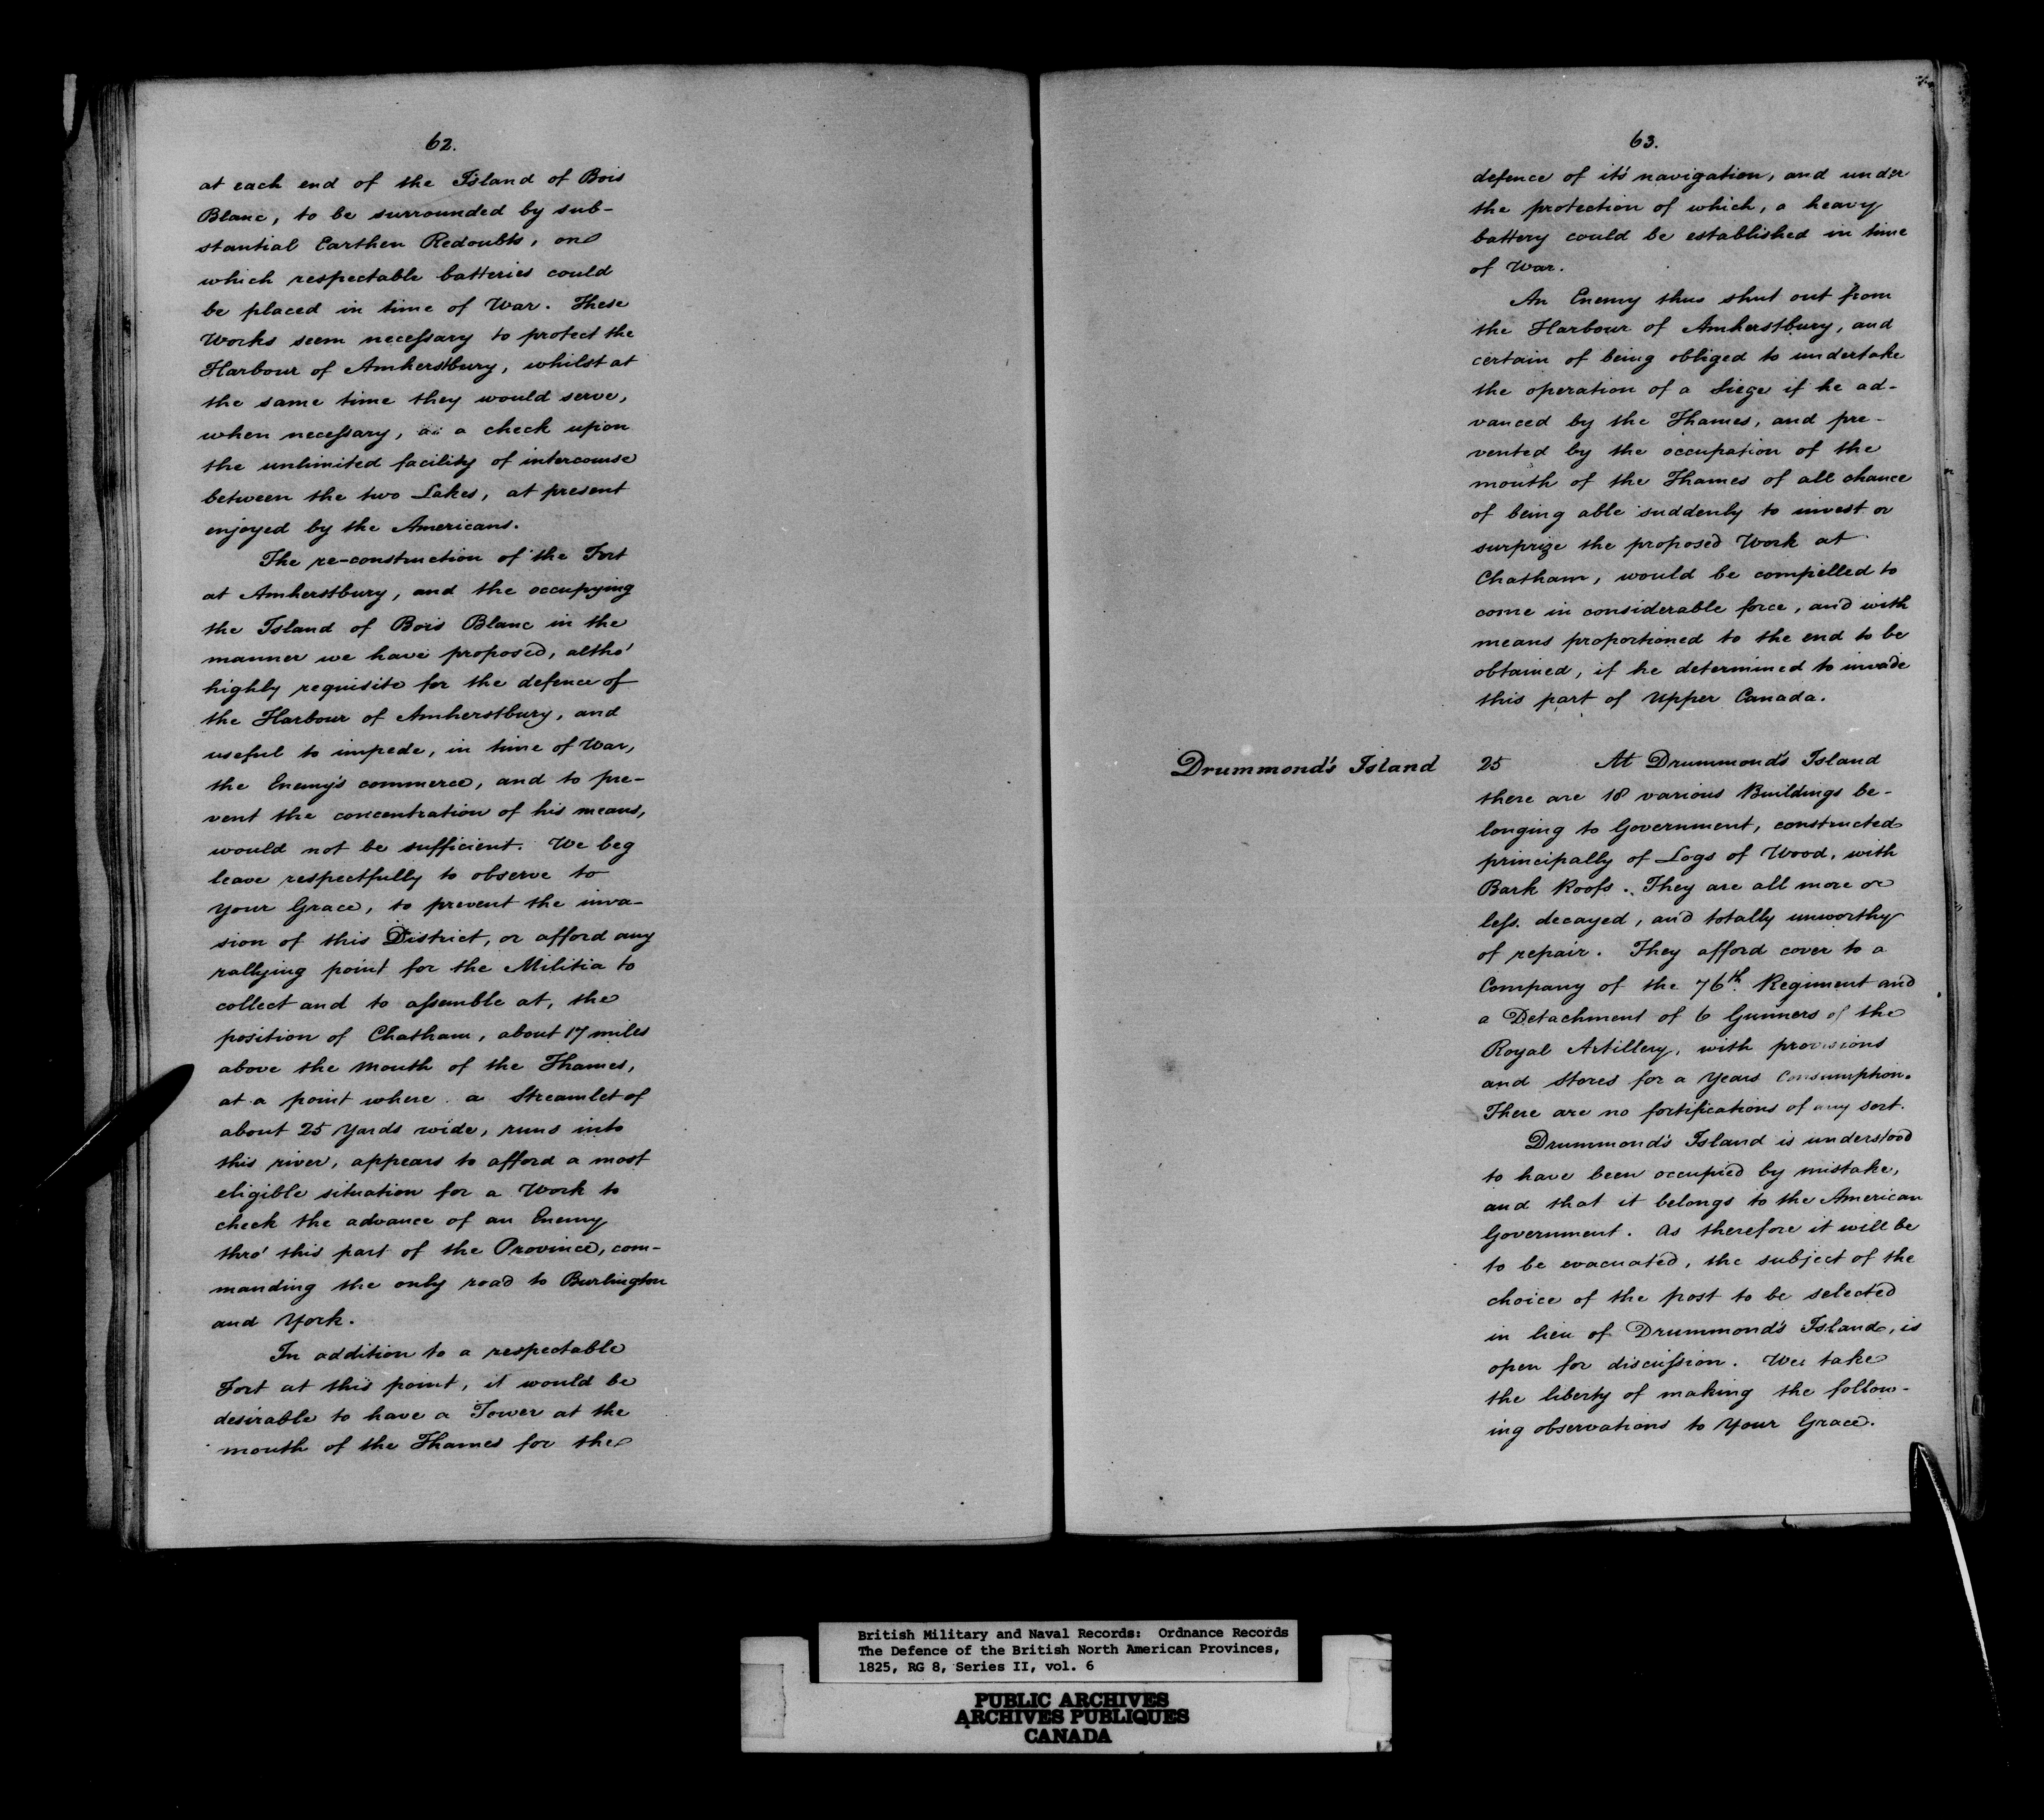 62.
at each end of the Island of Bois
Blanc, to be surrounded by sub-
stantial Earthen Redoubts, on
which respectable batteries could
be placed in time of War. These
Works seem necessary to protect the
Harbour of Amherstbury, whilst at
the same time they would serve,
when necessary, as a check upon
the unlimited facility of intercourse
between the two Lakes, at present
enjoyed by the Americans.
The re-construction of the Fort
at Amherstbury, and the occupying
the Island of Bois Blanc in the
manner we have proposed, altho'
highly requisite for the defence of
the Harbour of Amherstbury, and
useful to impede, in time of War,
the Enemy's commerce, and to pre-
vent the concentration of his means,
would not be sufficient. We beg
leave respectfully to observe to
Your Grace, to prevent the inva-
sion of this District, or afford any
rallying point for the Militia to
collect and to assemble at, the
position of Chatham, about 17 miles
above the Mouth of the Thames,
at a point where a Streamlet of
about 25 Yards wide, runs into
this river, appears to afford a most
eligible situation for a Work to
check the advance of an Enemy
thro' this part of the Province, com-
manding the only road to Burlington
and York.
In addition to a respectable
Fort at this point, it would be
desirable to have a Tower at the
mouth of the Thames for the
63.
defence of it's navigation, and under
the protection of which, a heavy
battery could be established in time
of War.
An Enemy thus shut out from
the Harbour of Amherstbury, and
certain of being obliged to undertake
the operation of a Siege if he ad-
vanced by the Thames, and pre-
vented by the occupation of the
mouth of the Thames of all chance
of being able suddenly to invest or
surprize the proposed Work at
Chatham, would be compelled to
come in considerable force, and with
means proportioned to the end to be
obtained, if he determined to invade
this part of Upper Canada.
Drummond's Island
25 At Drummond's Island
there are 18 various Buildings be-
longing to Government, constructed
principally of Logs of Wood, with
Bark Roofs. They are all more or
less decayed, and totally unworthy
of repair. They afford cover to a
Company of the 76th Regiment and
a Detachment of 6 Gunners of the
Royal Artillery, with provisions
and Stores for a Years Consumption.
There are no fortifications of any sort.
Drummond's Island is understood
to have been occupied by mistake,
and that it belongs to the American
Government. As therefore it will be
to be evacuated, the subject of the
choice of the post to be selected
in lieu of Drummond's Island, is
open for discussion. We take
the liberty of making the follow-
ing observations to Your Grace.
British Military and Naval Records: Ordnance Records
The Defence of the British North American Provinces,
1825, RG 8, Series II, vol. 6
PUBLIC ARCHIVES
ARCHIVES PUBLIQUES
CANADA